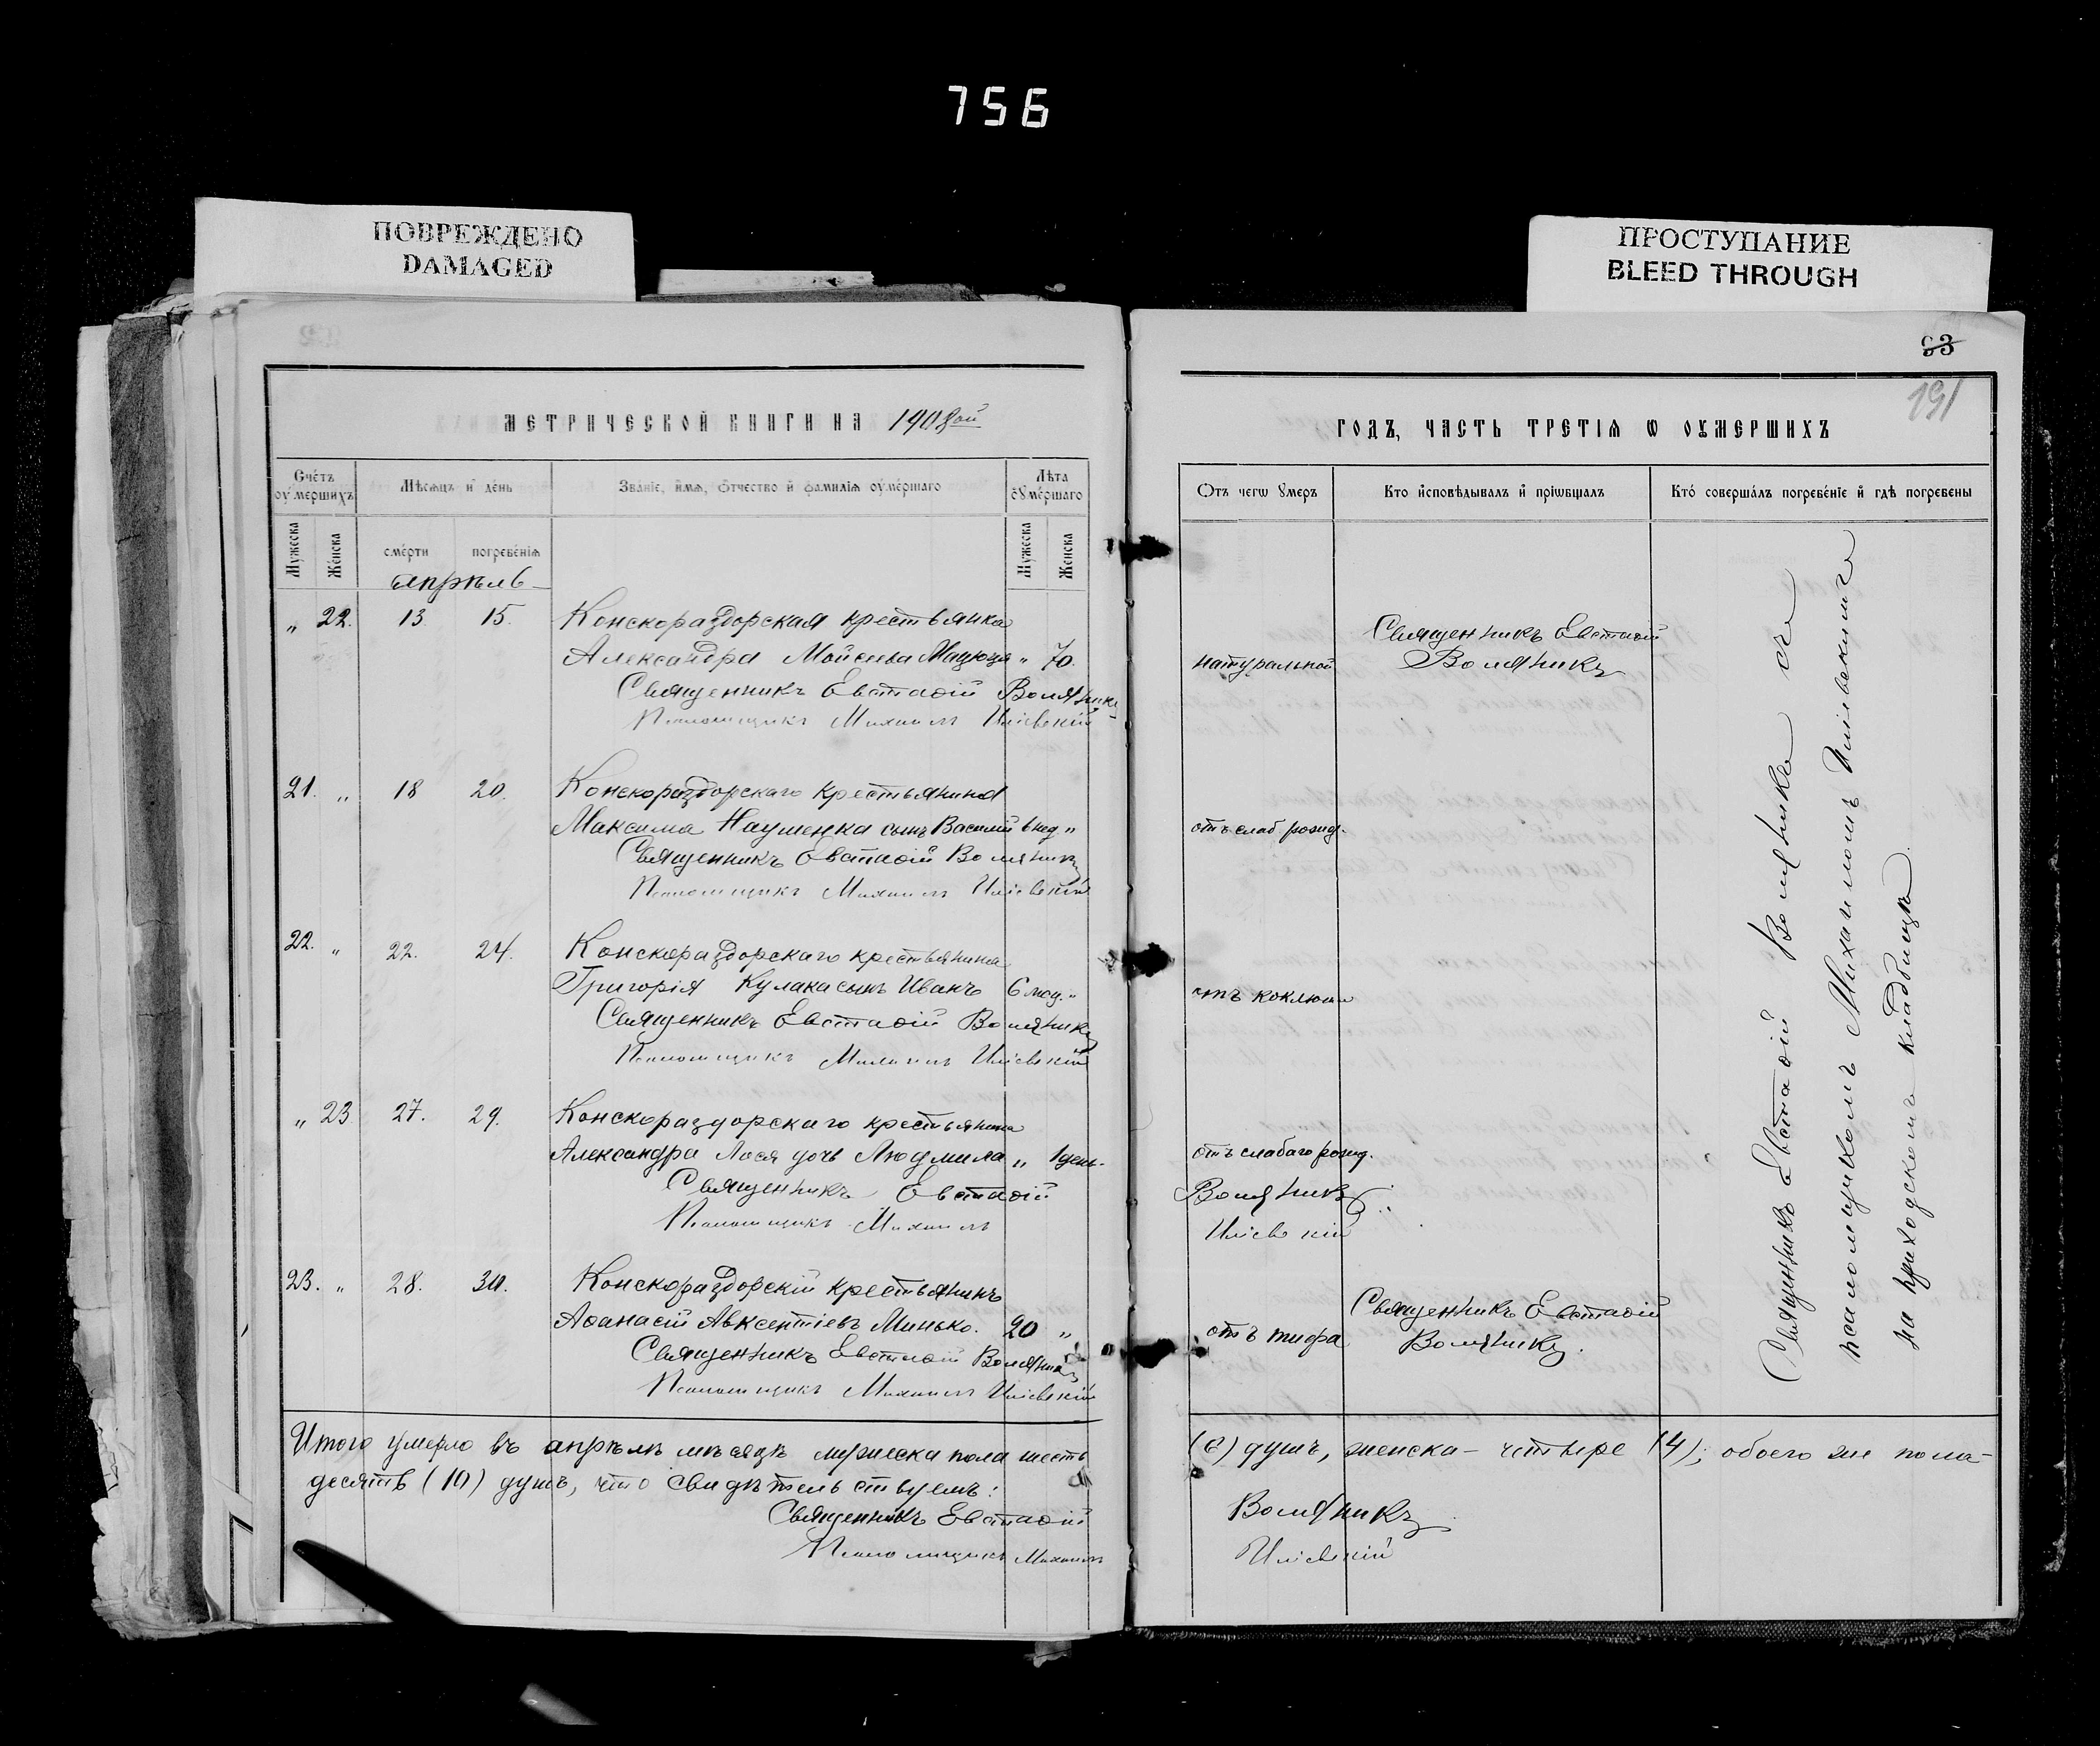 756
ПОВРЕЖДЕНО
DAMAGED
ПРОСТУПАНИЕ
BLEED THROUGH
93
191
МЕТРИЧЕСКОЙ КНИГИ НА 1908ой
ГОДЪ, ЧАСТЬ ТРЕТІѦ Ѡ ОУМЕРШИХЪ
Счётъ оумершихъ
Мѣсѧцъ и день
Званіе, имѧ, отчество и фамиліѧ оумершаго
Лѣта оумершаго
Отъ чегѡ умеръ
Кто исповѣдывалъ и прїѡбщалъ
Кто совершалъ погребеніе и гдѣ погребены
Мужеска
Женска
смерти
погребеніѧ
Мужеска
Женска
Апрѣль
„ 22. 13. 15. Конскораздорская крестьянка
Александра Мойсеева „ 70. натуральной
Священникъ Евстафій
Священникъ Евстафій
Псаломщикъ Михаилъ
21. „ 18 20. Конскораздорскаго крестьянина
Максима Науменка сынъ Василій 6 нед „ отъ слаб рожд.
Священникъ Евстафій
Псаломщикъ Михаилъ
22. „ 22. 24. Конскораздорскаго крестьянина
Григорія Кулака сынъ Иванъ 6 мѣс. „ отъ коклюша
Священникъ Евстафій
Псаломщикъ Михаилъ
„ 23 27. 29. Конскораздорскаго крестьянина
Александра Лося дочь Людмила „ 1 день. отъ слабаго рожд.
Священникъ Евстафій
Псаломщикъ Михаилъ
23. „ 28. 30. Конскораздорскій крестьянинъ
Афанасій Авксентіевъ Минько. 20 „ отъ тифа
Священникъ Евстафій
Священникъ Евстафій
Псаломщикъ Михаилъ
Священникъ Евстафій съ
псаломщикомъ Михаиломъ
на приходскомъ кладбищѣ.
Итого умерло въ апрѣлѣ мѣсяцѣ мужеска пола шесть (6) душъ, женска – четыре (4); обоего же пола –
десять (10) душъ, что свидѣтельствуемъ:
Священникъ Евстафій
Псаломщикъ Михаилъ